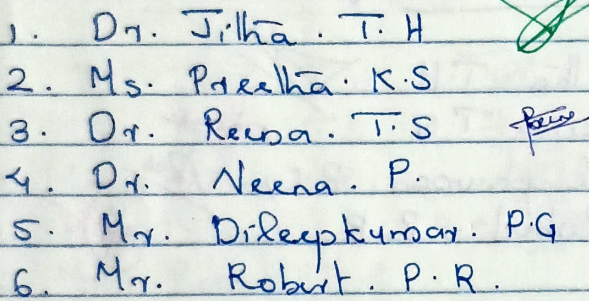 1. Dr. Jitha. T. H
2. Ms. Preetha. K.S
3. Dr. Reena. T.S
4. Dr. Neena. P.
5. Mr. Dileepkumar. P.G
6. Mr. Robert. P.R.